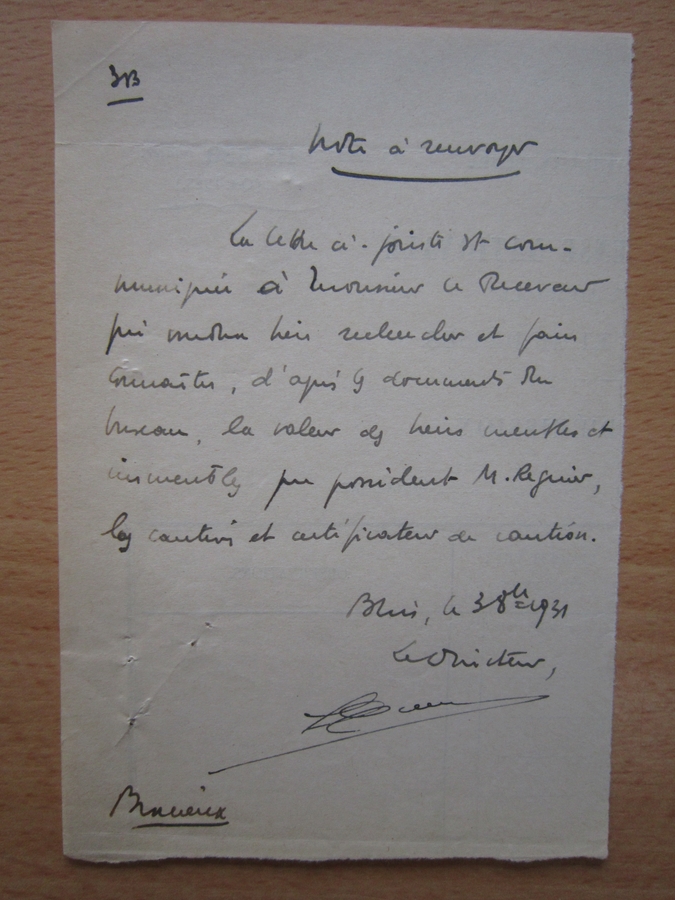 3B
Note à renvoyer
La lettre ci-jointe est com-
muniquée à Monsieur le Receveur
qui voudra bien rechercher et faire
connaître, d'après les documents du
bureau, la valeur des biens meubles et
immeubles que possèdent M. Regnier,
les cautions et certificateur de caution.
Blois, le 3 8bre 1931
Le Directeur,
Bracieux